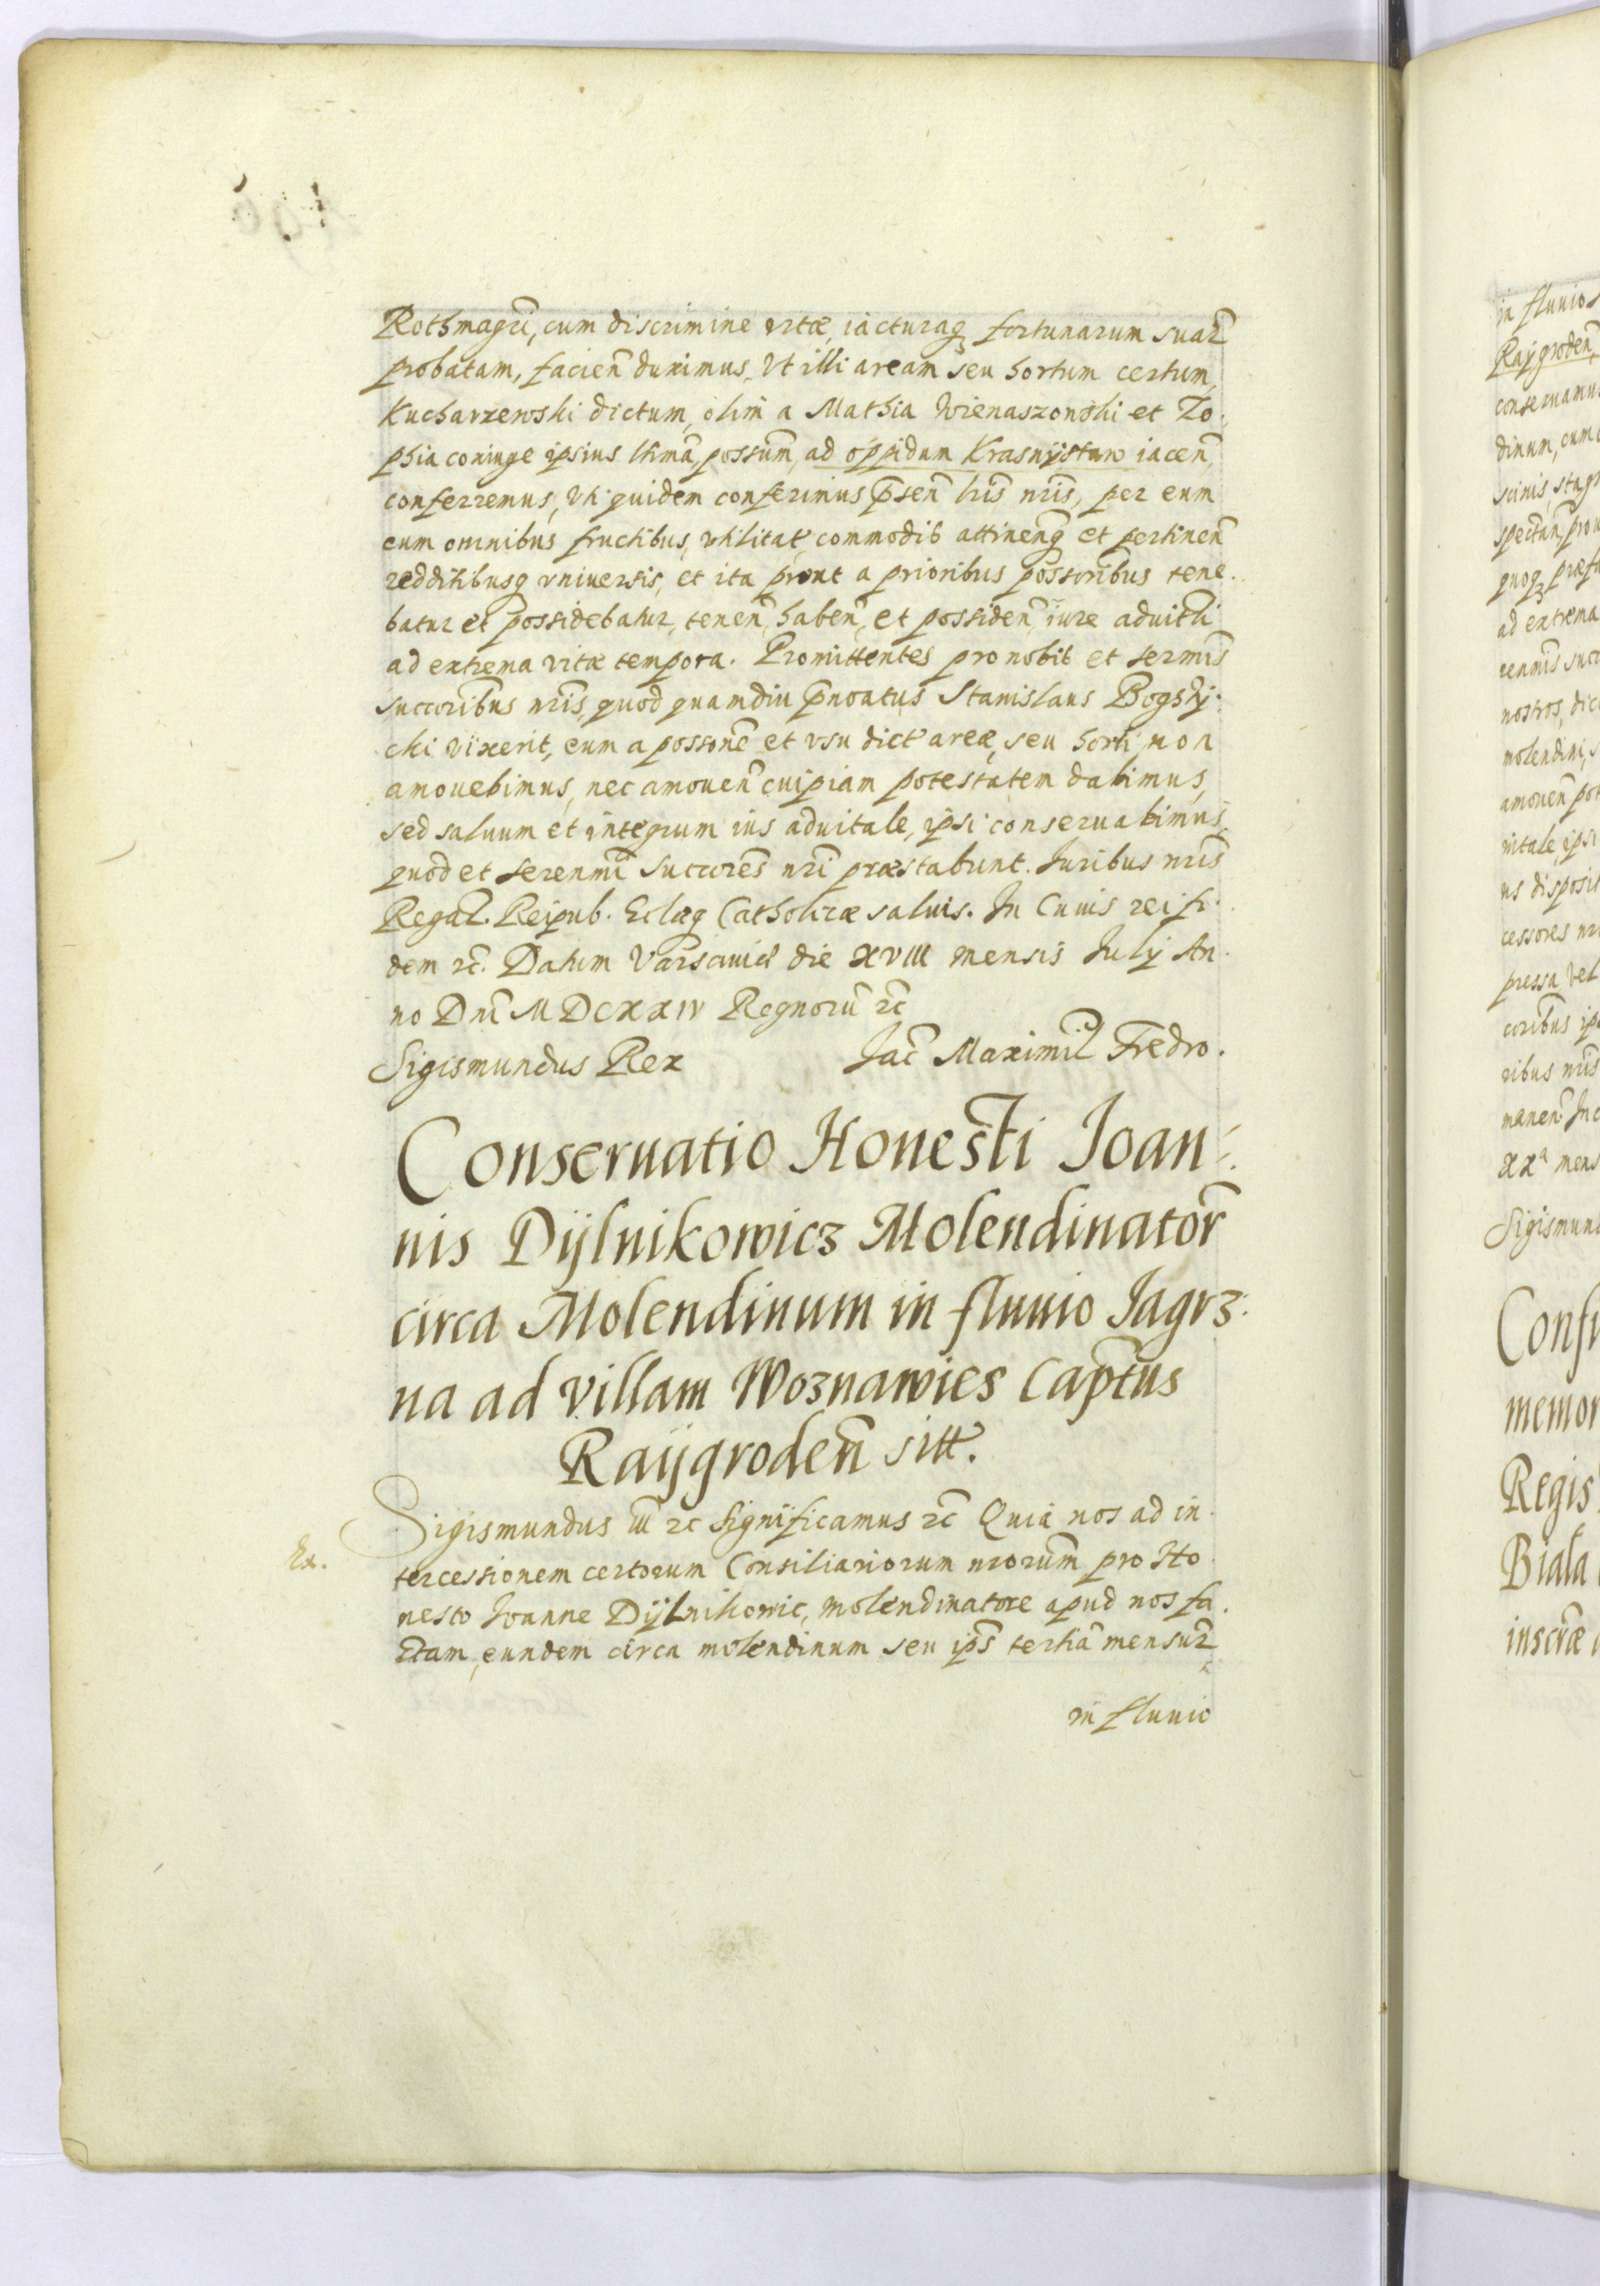 Rothmagrī, cum discrimine vitæ, iacturaq fortunarum suar
probatam, facien̄ duximus, Vt illi aream seu hortum certum,
Kucharzewski dictum, olim a Mathia Wienaszonski et Zo.
phia coniuge ipsius lt̄imā possum̄, ad oppidum Krasnystaw iacen̄
conferremus, Vti quidem conferimus p̄sen̄ lrīs nrīs, per eum
cum omnibus fructibus, vtilitat, commodis attinenq et pertinen̄
redditibusq vniuersis, et ita prout a prioribus possoribus tene.
batur et possidebatur, tenen̄, haben̄, et possiden̄ iure aduitłi
ad extrema vitæ tempora. Promittentes pro nobis et sermīs
succoribus nrīs, quod quamdiu p̄noatus Stanislaus Bogsky.
cki vixerit, eum a possone et vsu dict areæ, seu horti non
amouebimus, nec amouen̄ cuipiam potestatem dabimus,
sed saluum et integrum ius aduitale, ipsi conseruabimus,
quod et serenmī succores nrī præstabunt. Juribus nrīs
Regal. Reipub. Eclæq Catholicæ saluis. In Cuius rei fi.
dem &c. Datum Varsauiæ die XVIII mensis July An.
no Dnī MDCXXIV Regnorū &c
Sigismundus Rex Jac̄ Maximil Fredro.
Conseruatio Honesti Ioan=
nis Dÿlnikowicz Molendinator̄
circa Molendinum in fluuio Jagrz.
na ad villam Woznawies Captus
Raÿgroden̄ sitt.
Ex.
Sigismundus III &c Significamus &c Quia nos ad in.
tercessionem certorum Consiliariorum nrorum pro Ho
nesto Ioanne Dÿlnikowic, molendinatore apud nos fa.
ctam, eundem circa molendinum seu ips̄ tertiā mensur̄
in fluuio
in fluuio
Raÿgroden̄
conseruamus
dinum, cum
scinis, stagn
spectan, prou
quoq præfa
ad extrema
renmīs succ
nostros, dic
molendini, s
amouen̄ pot
uitale, ipsi
us disposit
cessores nr
pressa, vel
coribus ip
ribus nrīs
manen̄ In c
XXa mens
Sigismund
Confi
memor
Regis
Biala
inscræ